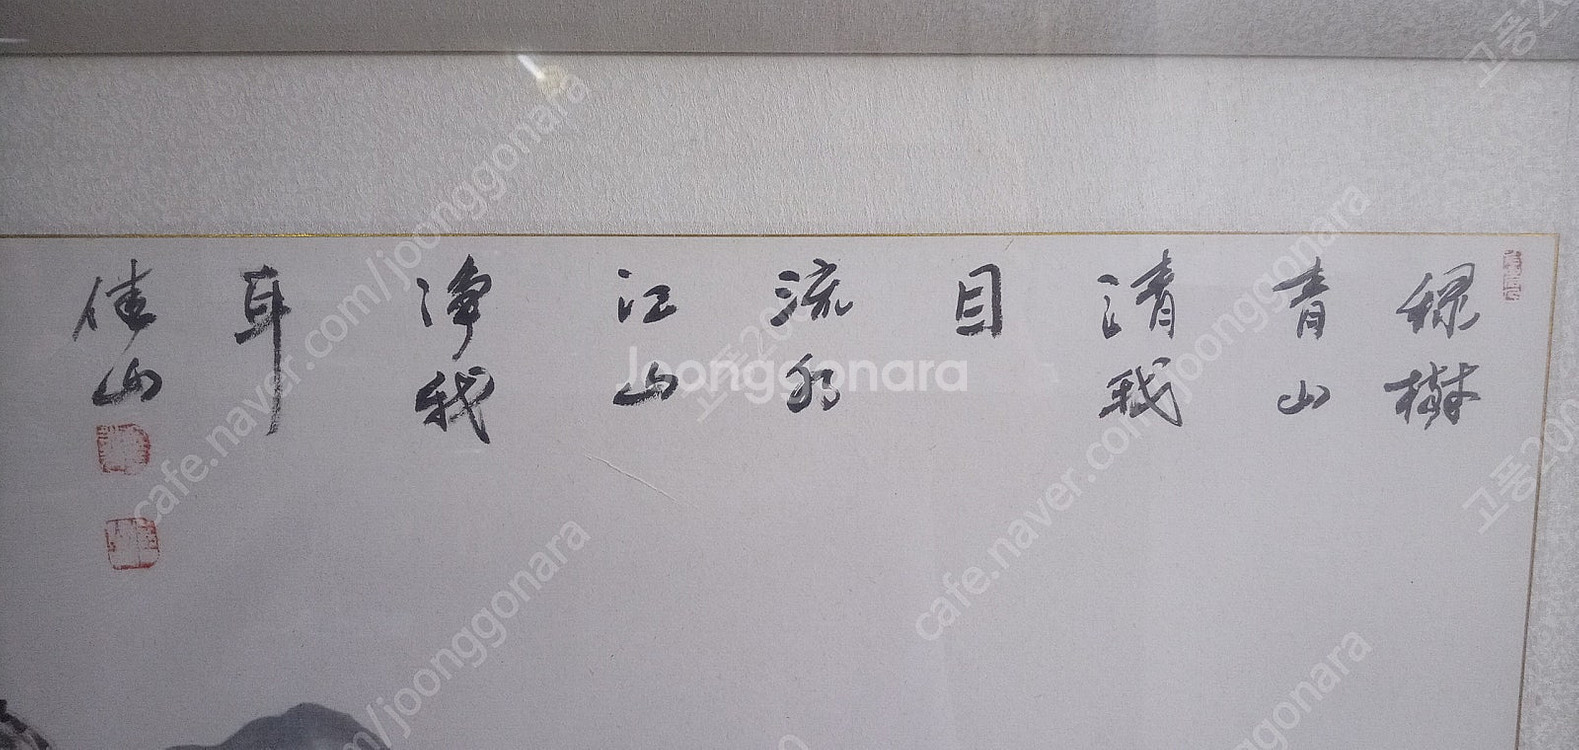 綠樹
青山
清我
目
流水
江山
淨我
耳
佳山
Joonggonara
cafe.naver.com/joonggonara
cafe.naver.com/joonggonara